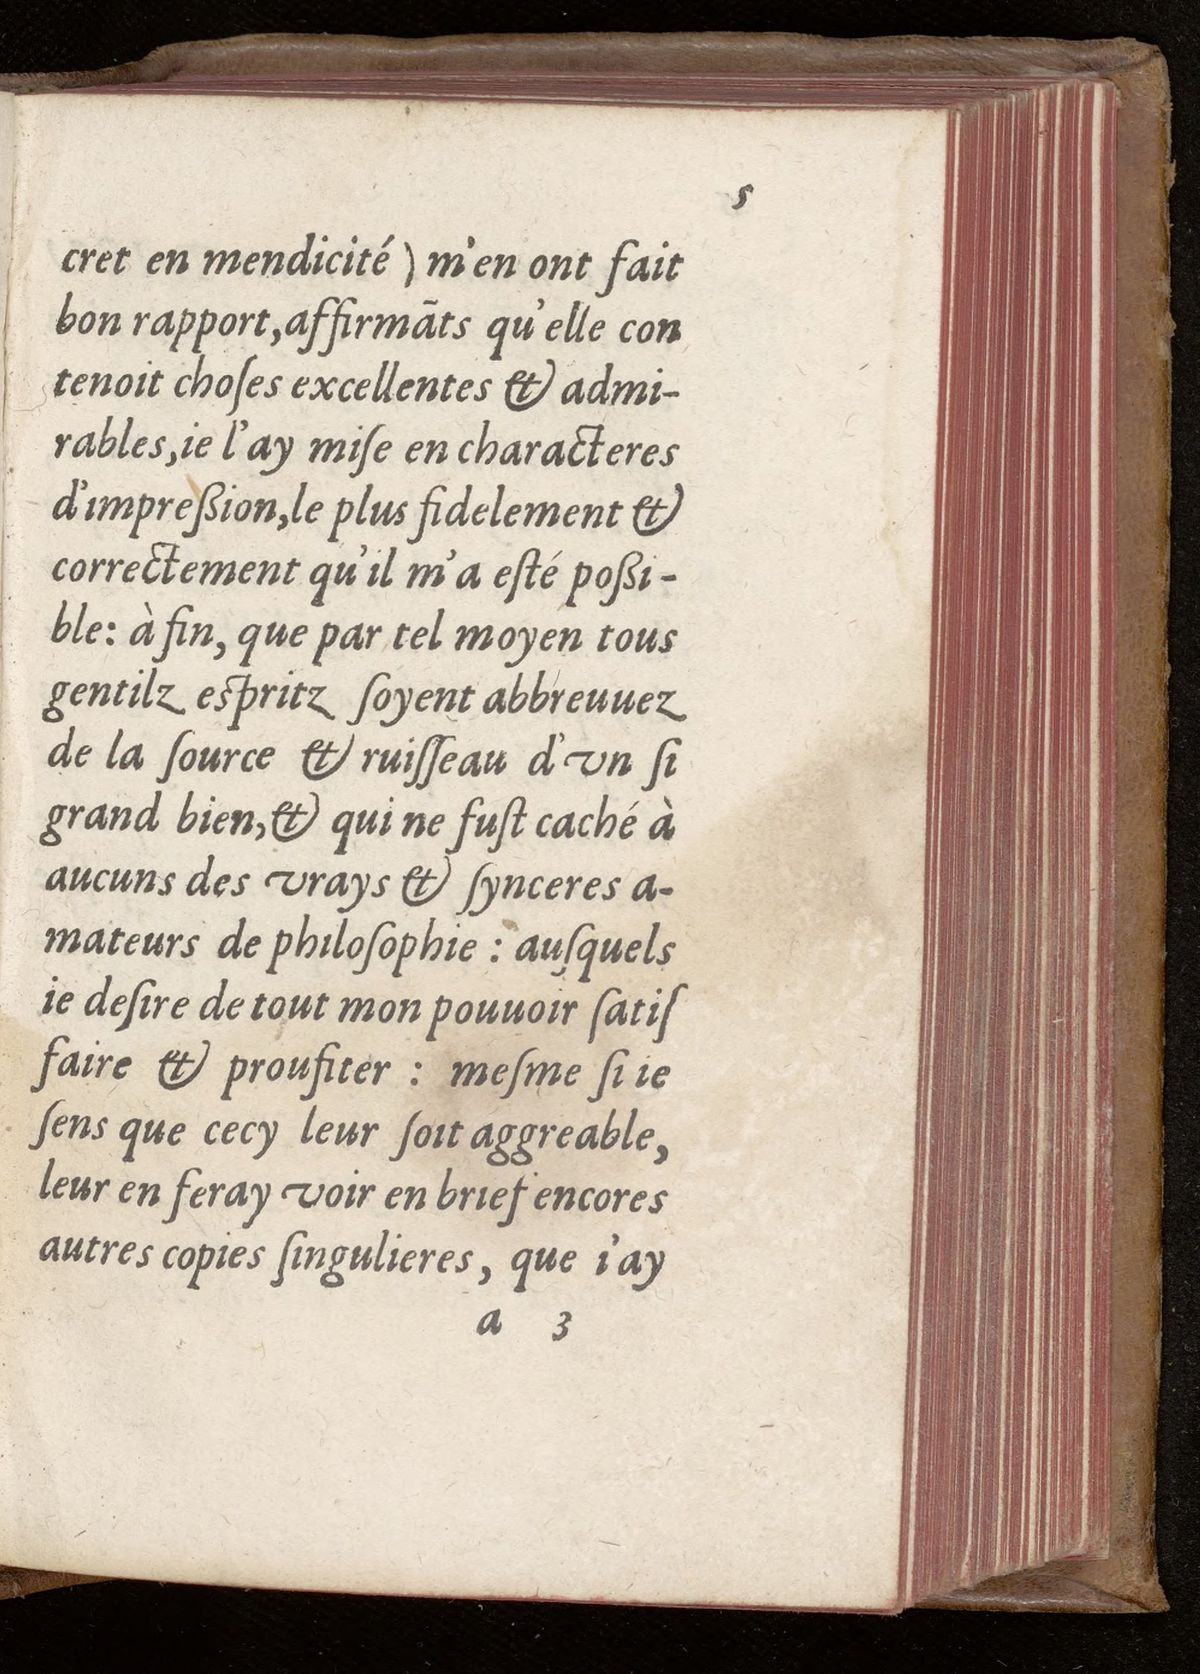 5
cret en mendicité ) m'en ont fait
bon rapport, affirmãts qu'elle con
tenoit choſes excellentes & admi-
rables, ie l'ay miſe en characteres
d'impreßion, le plus fidelement &
correctement qu'il m'a eſté poßi-
ble: à fin, que par tel moyen tous
gentilz espritz ſoyent abbreuuez
de la ſource & ruiſſeau d'vn ſi
grand bien, & qui ne fuſt caché à
aucuns des vrays & ſynceres a-
mateurs de philoſophie : auſquels
ie deſire de tout mon pouuoir ſatiſ
faire & proufiter : meſme ſi ie
ſens que cecy leur ſoit aggreable,
leur en feray voir en brief encores
autres copies ſingulieres, que i'ay
a 3